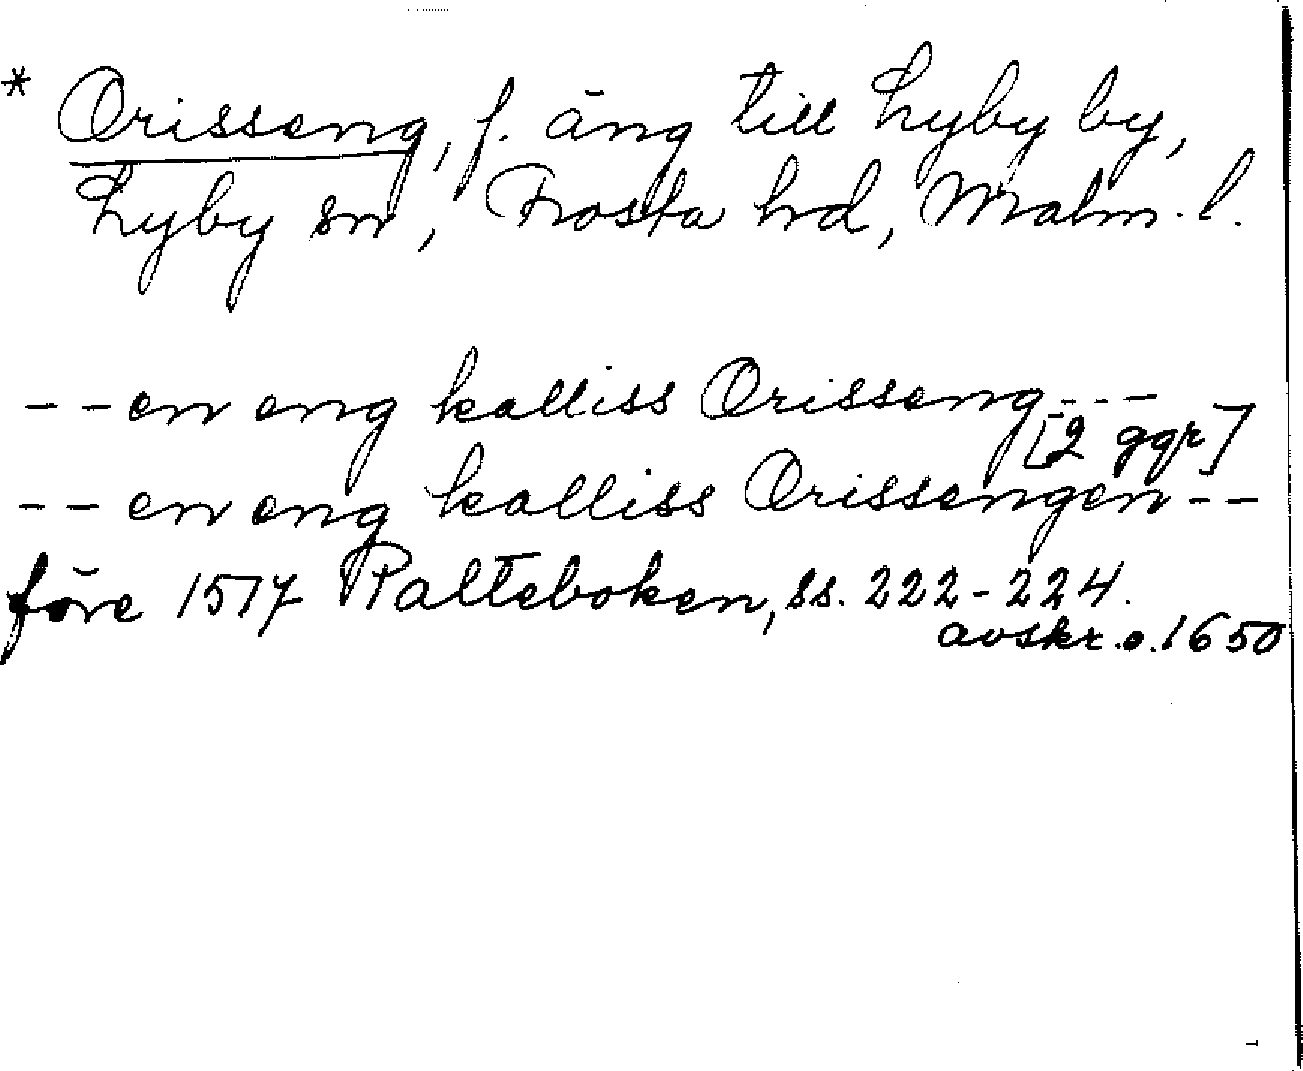 * Orisseng, f. äng till Lyby by,
Lyby sn, Frosta hd, Malm. l.
-- en eng kalliss Orisseng---
[2 ggr]
-- en eng kalliss Orissengen--
före 1517 Palteboken, ss. 222-224.
avskr. o. 1650